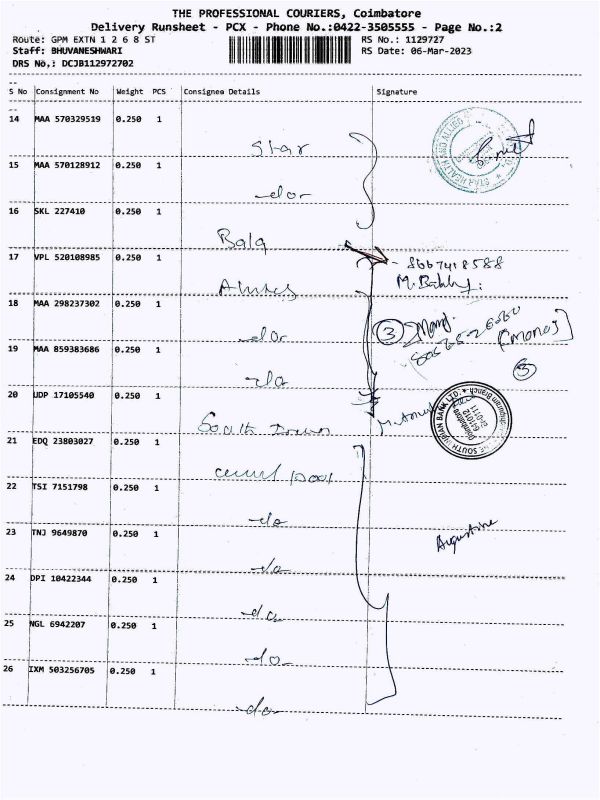 THE PROFESSIONAL COURIERS, Coimbatore
Delivery Runsheet - PCX - Phone No.:0422-3505555 - Page No.:2
Route: GPM EXTN 1 2 6 8 ST RS No.: 1129727
Staff: BHUVANESHWARI RS Date: 06-Mar-2023
DRS No,: DCJB112972702
S No Consignment No Weight PCS Consignee Details Signature
14 MAA 570329519 0.250 1
Star
15 MAA 570128912 0.250 1
-do-
16 SKL 227410 0.250 1
Bala
17 VPL 520108985 0.250 1
- 8667418588
18 MAA 298237302 0.250 1
-do-
3
[Manoj]
19 MAA 859383686 0.250 1
3
20 UDP 17105540 0.250 1
South
21 EDQ 23803027 0.250 1
22 TSI 7151798 0.250 1
-do-
23 TNJ 9649870 0.250 1
Augustine
-do-
24 DPI 10422344 0.250 1
-do-
25 NGL 6942207 0.250 1
-do-
26 IXM 503256705 0.250 1
-do-